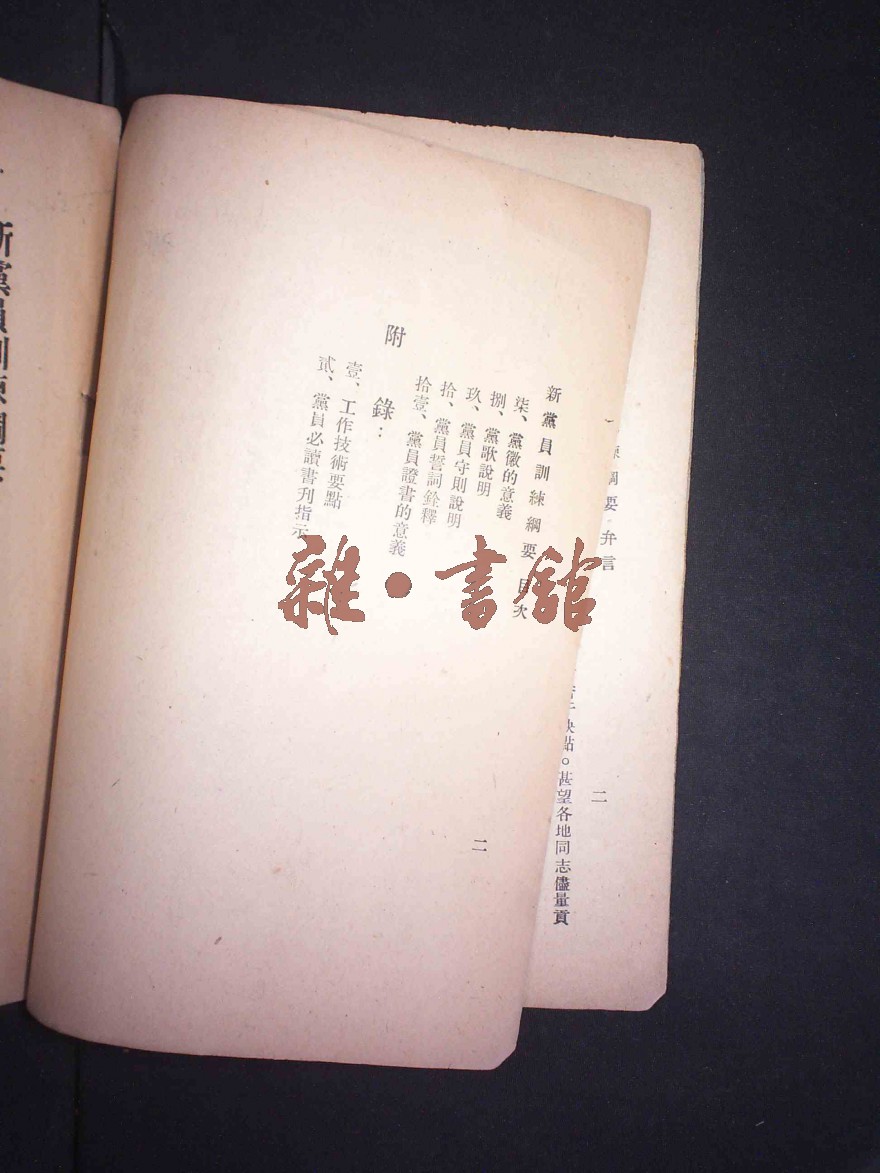 練綱要 弁言
二
缺點。甚望各地同志儘量貢
新黨員訓練綱要 目次
二
柒、黨徽的意義
捌、黨歌說明
玖、黨員守則說明
拾、黨員誓詞銓釋
拾壹、黨員證書的意義
附錄：
壹、工作技術要點
貳、黨員必讀書刊指示
新黨員訓練綱要
雜·書館